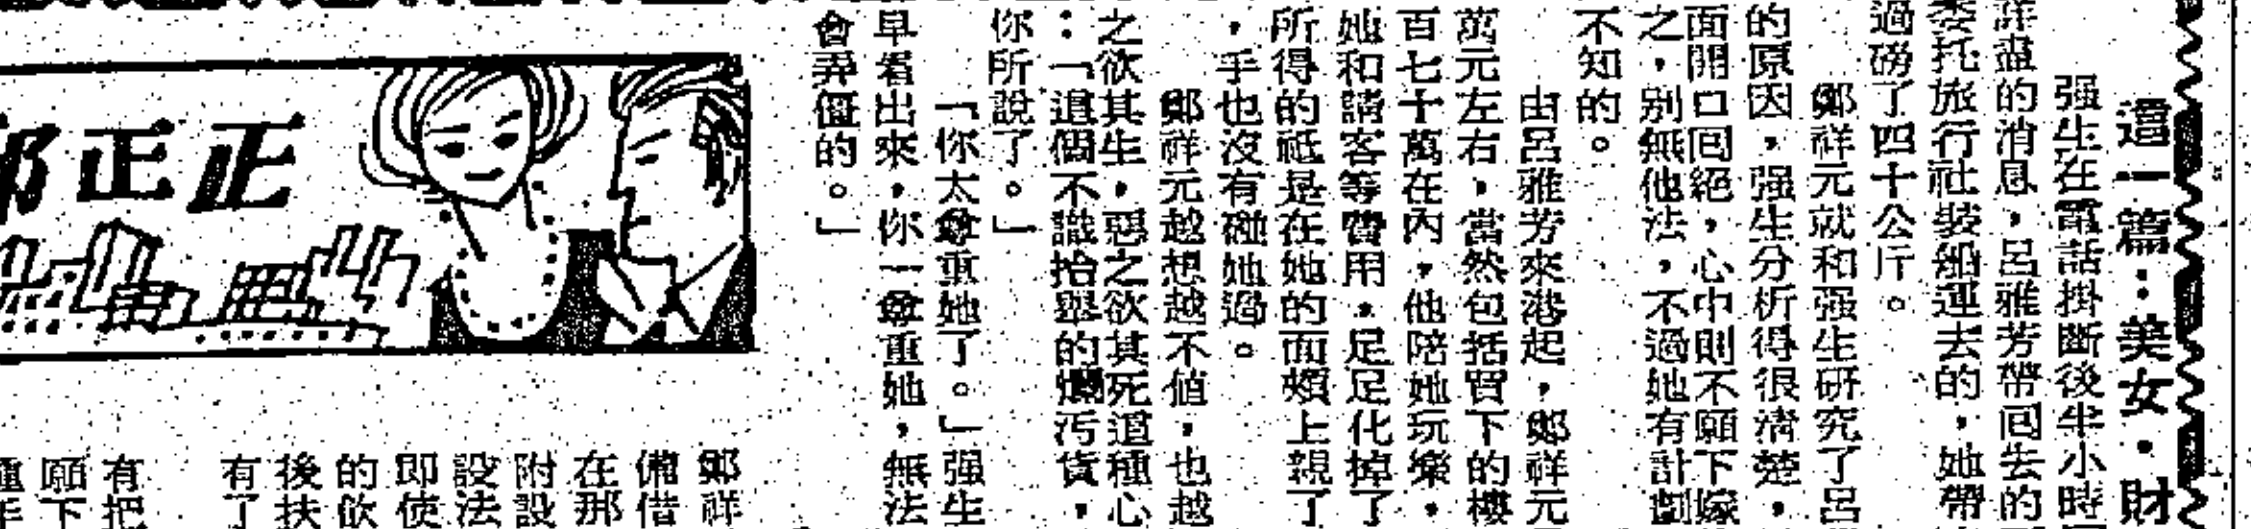 這一篇：美女．財
强生在電話掛斷後半小時
詳盡的消息，呂雅芳帶囘去的
委托旅行社裝船運去的，她帶
過磅了四十公斤。
鄭祥元就和强生研究了呂
的原因，强生分析得很清楚，
面開口囘絕，心中則不願下嫁
之，别無他法，不過她有計劃
不知的。
由呂雅芳來港起，鄭祥元
萬元左右，當然包括買下的樓
百七十萬在內，他陪她玩樂，
她和請客等費用，足足化掉了
所得的祗是在她的面頰上親了
，手也沒有碰她過。
鄭祥元越想越不值，也越
之欲其生，惡之欲其死這種心
：「這個不識抬舉的爛污貨，
你所說了。」
「你太尊重她了。」强生
早看出來，你一尊重她，無法
會弄僵的。」
正正
鄭祥
備借
在那
附設
設法
即使
的飲
後扶
有了
有把
願下